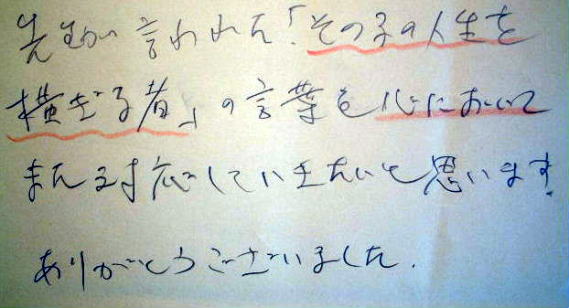 先生が言われた「その子の人生を
横ぎる者」の言葉を心において
また対応していきたいと思います
ありがとうございました.